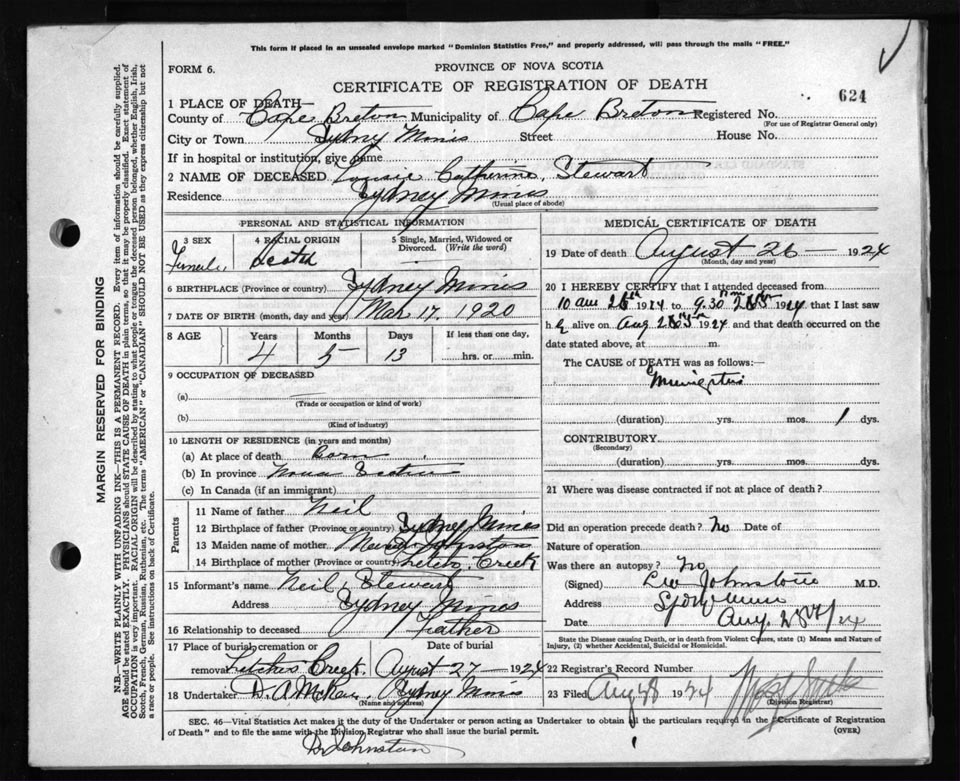 This form if placed in an unsealed envelope marked "Dominion Statistics Free," and properly addressed, will pass through the mails "FREE."
FORM 6.
PROVINCE OF NOVA SCOTIA
CERTIFICATE OF REGISTRATION OF DEATH
624
1 PLACE OF DEATH—
County of Cape Breton Municipality of Cape Breton Registered No.
(For use of Registrar General only)
City or Town Sydney Mines Street House No.
If in hospital or institution, give name
2 NAME OF DECEASED Catherine Stewart
Residence Sydney Mines
(Usual place of abode)
PERSONAL AND STATISTICAL INFORMATION
3 SEX 4 RACIAL ORIGIN 5 Single, Married, Widowed or Divorced. (Write the word)
Female Scotch
6 BIRTHPLACE (Province or country) Sydney Mines
7 DATE OF BIRTH (month, day and year) Mar 17, 1920
8 AGE Years Months Days If less than one day,
4 5 13 hrs. or min.
9 OCCUPATION OF DECEASED
(a)
(Trade or occupation or kind of work)
(b)
(Kind of industry)
10 LENGTH OF RESIDENCE (in years and months)
(a) At place of death Born
(b) In province Nova Scotia
(c) In Canada (if an immigrant)
Parents
11 Name of father Neil
12 Birthplace of father (Province or country) Sydney Mines
13 Maiden name of mother Johnston
14 Birthplace of mother (Province or country) Creek
15 Informant's name Neil Stewart
Address Sydney Mines
16 Relationship to deceased Father
17 Place of burial, cremation or removal Date of burial
Creek August 27 1924
18 Undertaker D. A. Sydney Mines
(Name and address)
MEDICAL CERTIFICATE OF DEATH
19 Date of death August 26 1924
(Month, day and year)
20 I HEREBY CERTIFY that I attended deceased from
10 am 1924 to 9.30 1924 that I last saw
h alive on Aug 1924 and that death occurred on the
date stated above, at m.
The CAUSE of DEATH was as follows:—
(duration) yrs. mos. 1 dys.
CONTRIBUTORY
(Secondary)
(duration) yrs. mos. dys.
21 Where was disease contracted if not at place of death?
Did an operation precede death? No Date of
Nature of operation
Was there an autopsy? No
(Signed) Johnstone M.D.
Address
Date Aug 28th/24
State the Disease causing Death, or in death from Violent Causes, state (1) Means and Nature of
Injury, (2) whether Accidental, Suicidal or Homicidal.
22 Registrar's Record Number
23 Filed Aug 28 1924
(Division Registrar)
SEC. 46—Vital Statistics Act makes it the duty of the Undertaker or person acting as Undertaker to obtain all the particulars required in the "Certificate of Registration
of Death" and to file the same with the Division Registrar who shall issue the burial permit.
(OVER)
Johnston
MARGIN RESERVED FOR BINDING
N.B.—WRITE PLAINLY WITH UNFADING INK—THIS IS A PERMANENT RECORD. Every item of information should be carefully supplied.
AGE should be stated EXACTLY. PHYSICIANS should STATE CAUSE OF DEATH in plain terms, so that it may be properly classified. Exact statement of
OCCUPATION is very important. RACIAL ORIGIN will be described by stating to what people or tongue the deceased person belonged, whether English, Irish,
Scotch, French, German, Russian, Ruthenian, etc. The terms "AMERICAN" or "CANADIAN" SHOULD NOT BE USED as they express citizenship but not
a race or people. See instructions on back of Certificate.